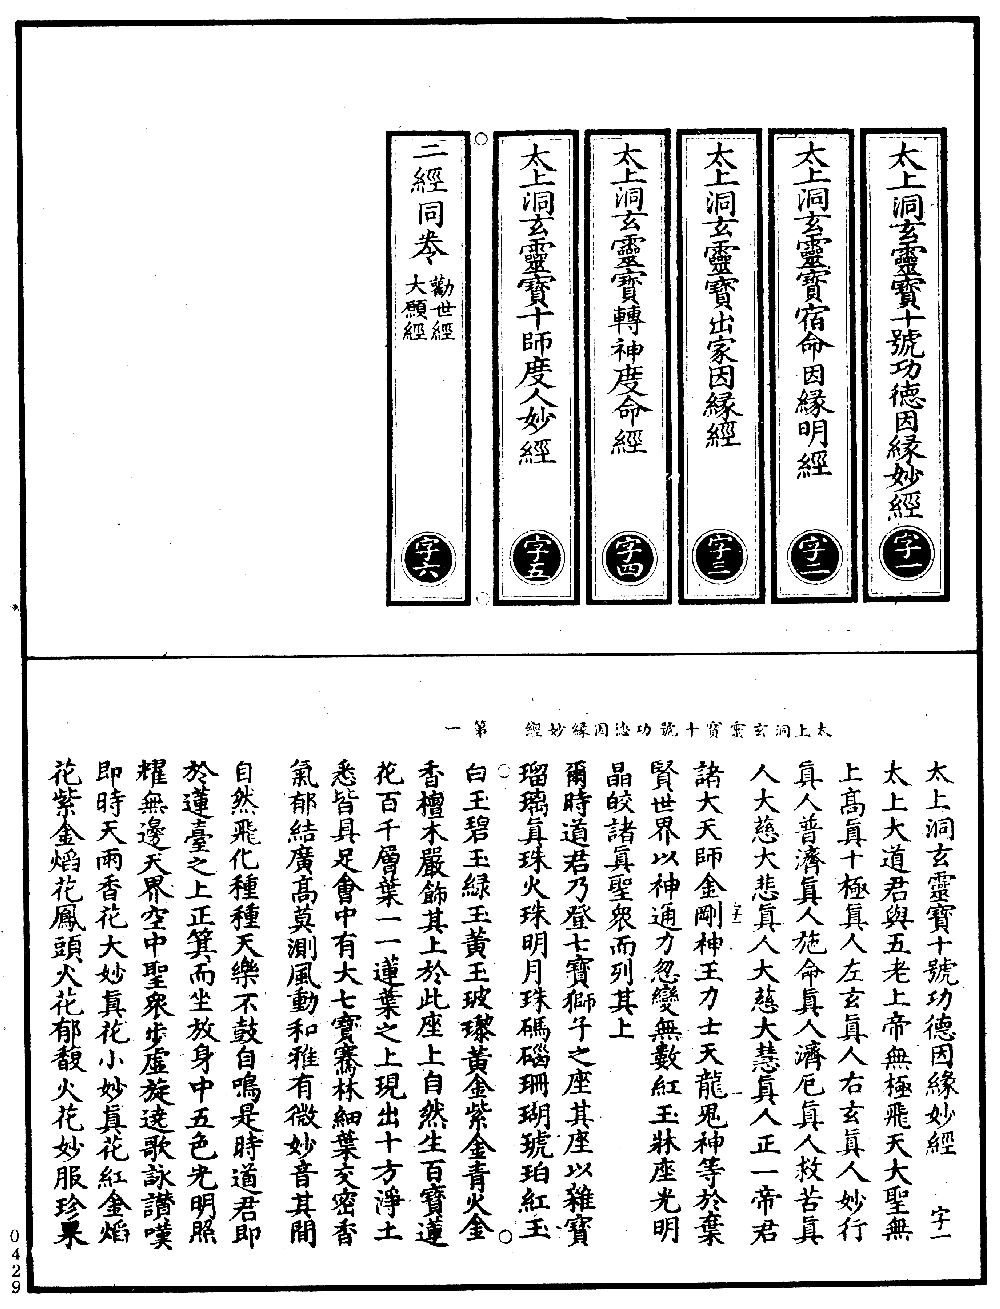 太上洞玄靈寶十號功德因緣妙經
字一
太上洞玄靈寶宿命因緣明經
字二
太上洞玄靈寶出家因緣經
字三
太上洞玄靈寶轉神度命經
字四
太上洞玄靈寶十師度人妙經
字五
二經同卷 勸世經
大願經
字六
太上洞玄靈寶十號功德因緣妙經 第一
太上洞玄靈寶十號功德因緣妙經 字一
太上大道君與五老上帝無極飛天大聖無
上高眞十極眞人左玄眞人右玄眞人妙行
眞人普濟眞人施命眞人濟厄眞人救苦眞
人大慈大悲眞人大慈大慧眞人正一帝君
諸大天師金剛神王力士天龍鬼神等於葉
賢世界以神通力忽變無數紅玉牀座光明
晶皎諸眞聖衆而列其上
爾時道君乃登七寶獅子之座其座以雜寶
瑠璃眞珠火珠明月珠碼碯珊瑚琥珀紅玉
白玉碧玉綠玉黃玉玻瓈黃金紫金青火金
香檀木嚴飾其上於此座上自然生百寶蓮
花百千層葉一一蓮葉之上現出十方淨土
悉皆具足會中有大七寶騫林細葉交密香
氣郁結廣高莫測風動和雅有微妙音其間
自然飛化種種天樂不鼓自鳴是時道君即
於蓮臺之上正箕而坐放身中五色光明照
耀無邊天界空中聖衆步虛旋遶歌詠讚嘆
即時天雨香花大妙眞花小妙眞花紅金熖
花紫金熖花鳳頭火花郁馥火花妙服珍果
0429